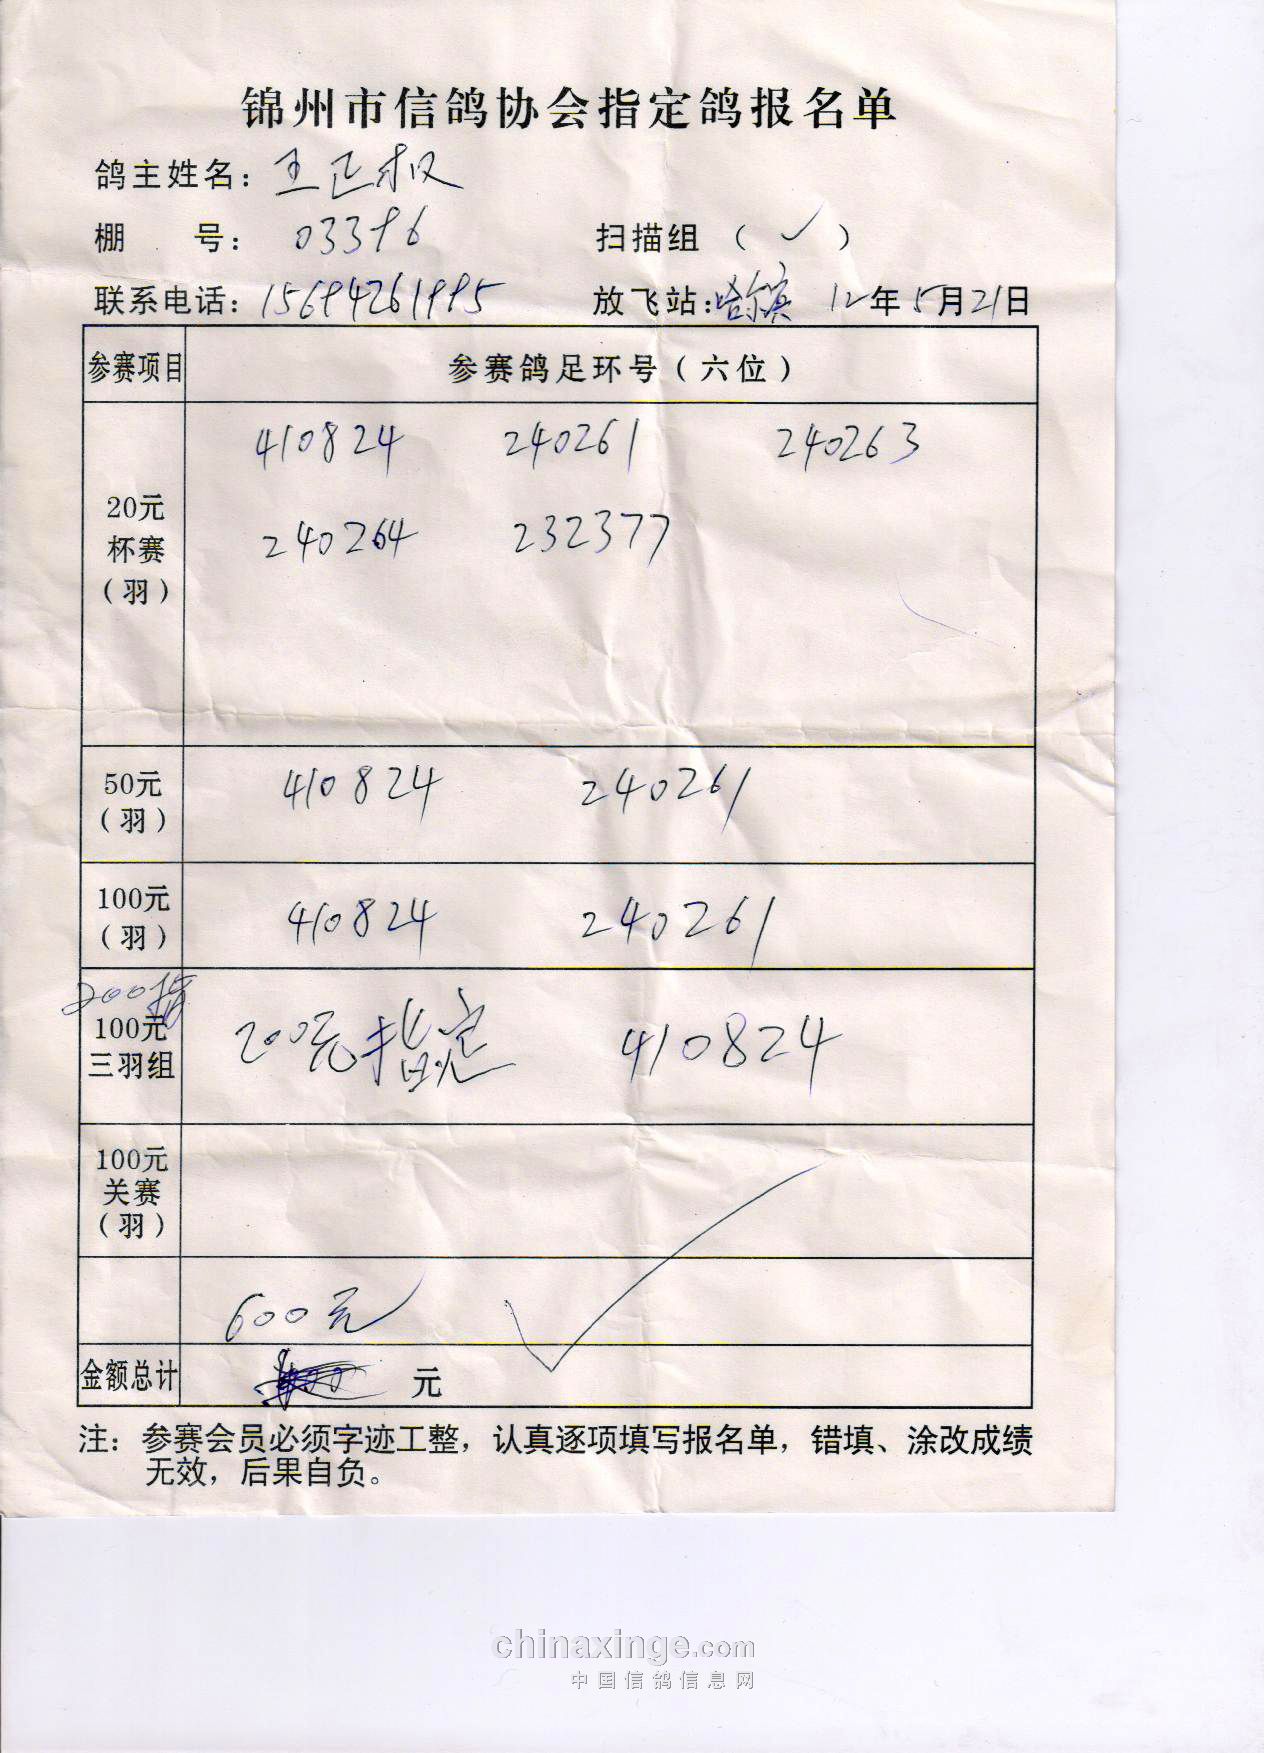 锦州市信鸽协会指定鸽报名单
鸽主姓名：王正权
棚 号：03396 扫描组（✓）
联系电话：15694261995 放飞站：哈尔滨 12年5月21日
参赛项目 参赛鸽足环号（六位）
20元
杯赛
（羽）
410824 240261 240263
240264 232377
50元
（羽）
410824 240261
100元
（羽）
410824 240261
200指
100元
三羽组
200元指定 410824
100元
关赛
（羽）
600元
金额总计 元
注：参赛会员必须字迹工整，认真逐项填写报名单，错填、涂改成绩
无效，后果自负。
chinaxinge.com
中国信鸽信息网